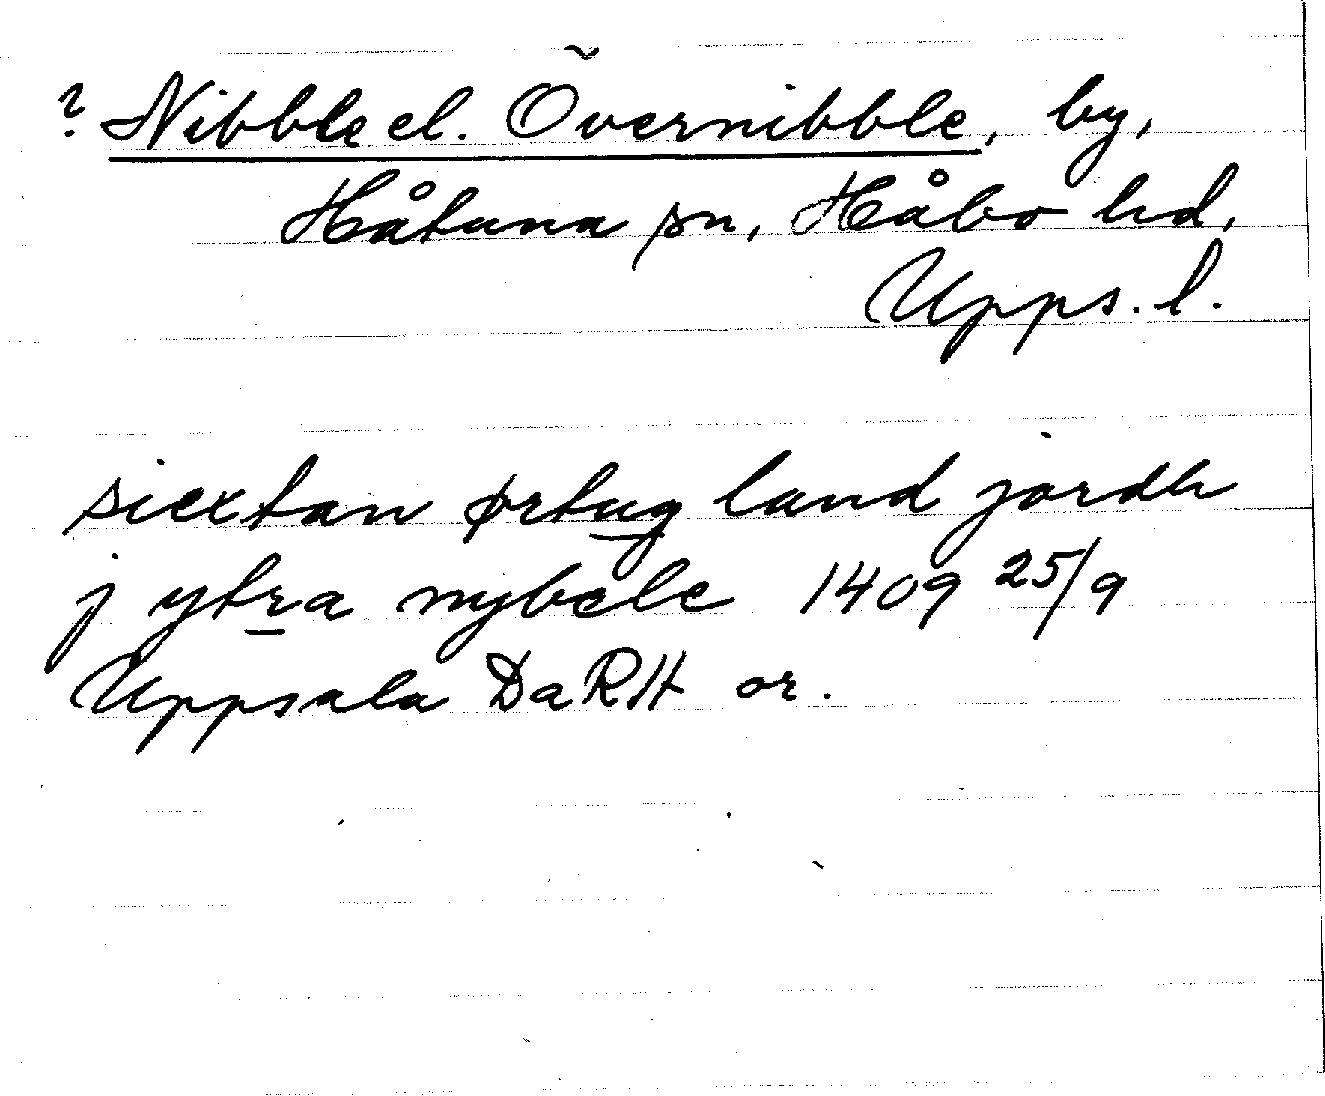 ? Nibble el. Övernibble, by,
Håtuna sn, Håbo hd,
Upps. l.
siextan ørtug land jordh
j ytra nybele 1409 25/9
Uppsala DaRH or.